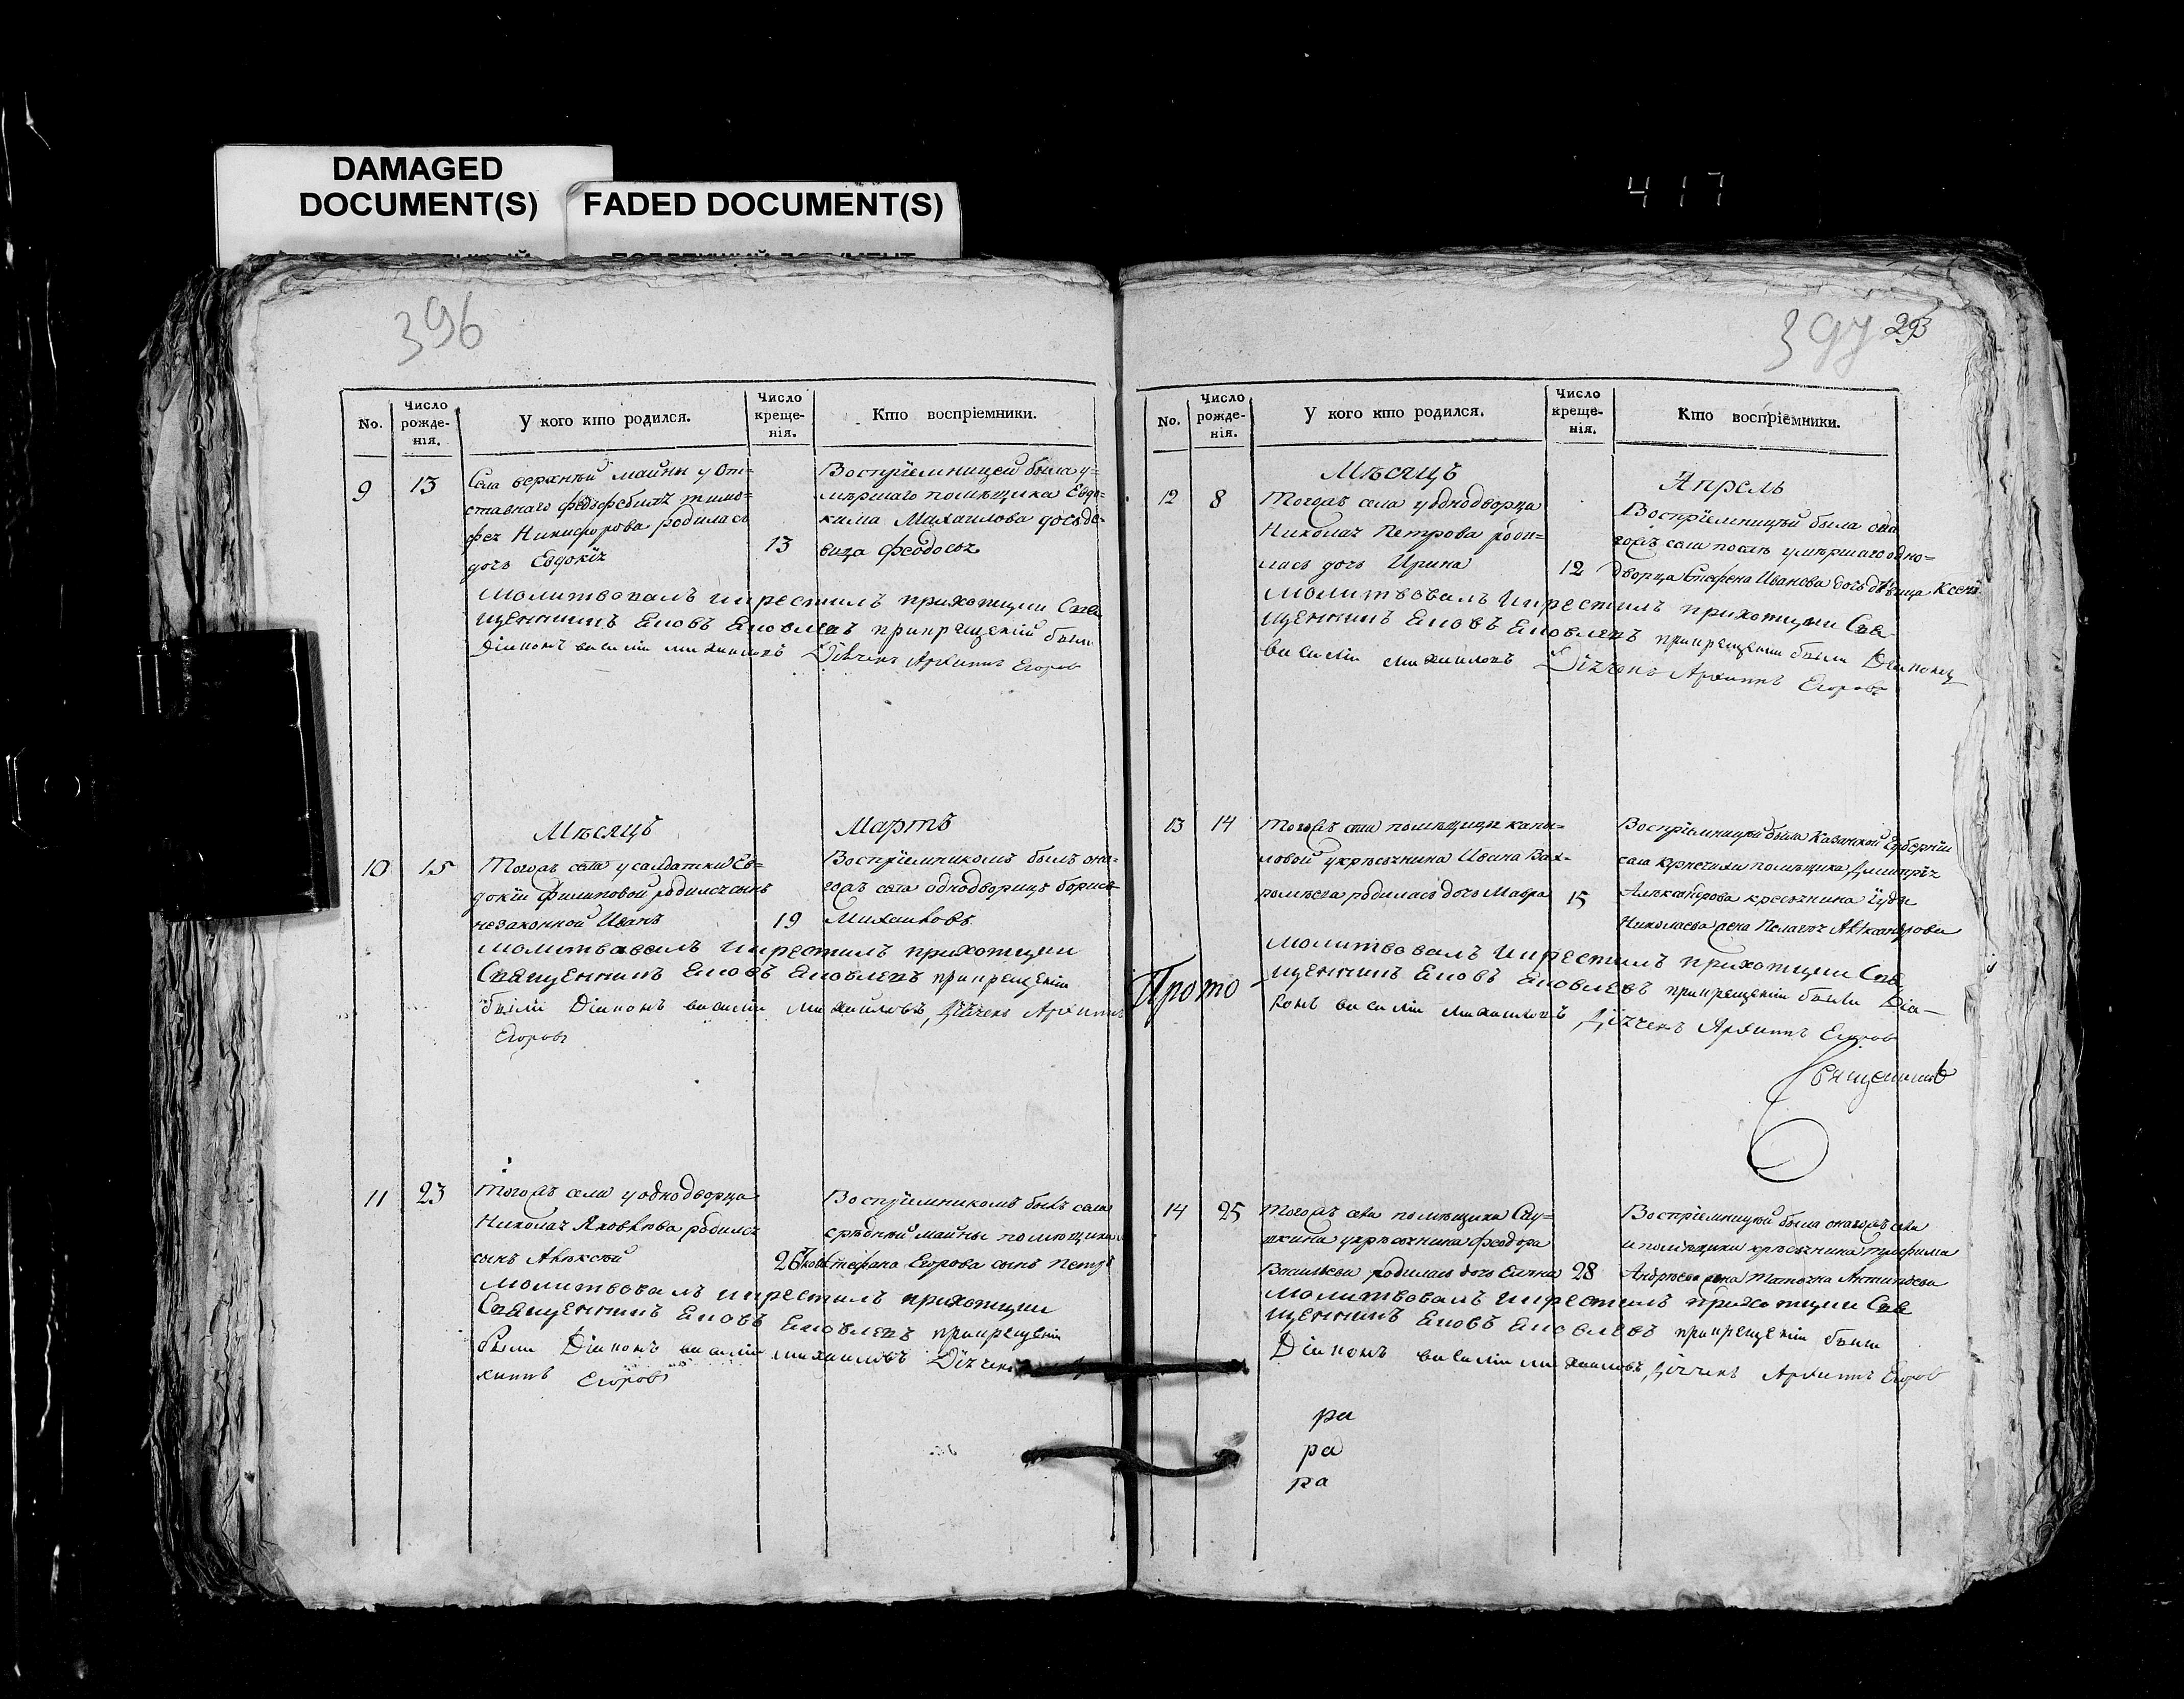 DAMAGED
DOCUMENT(S)
FADED DOCUMENT(S)
417
396
No.
Число рожде-нія.
У кого кто родился.
Число креще-нія.
Кто воспріемники.
9 13
Села верхней майны у От=
ставнаго фелдфебиля тимо=
фея Никифорова родилась
дочь Евдокія
13
Воспріемницей была у=
мѣршаго помѣщика Евдо=
кима Михаилова дочь де=
вица Феодосья
Молитвовалъ и крестилъ приходщеи Свя
щенникъ Іаковъ Іаковлевъ при крещеніи были
Діаконъ василіи михаиловъ Дьячекъ Архипъ Егоровъ
Мѣсяцъ Мартъ
10 15
Тогожъ села у салдатки Ев=
докіи Филиповой родился сынъ
незаконной Иванъ
19
Воспріемникомъ былъ она=
гожъ села однодворецъ борисъ
Михаиловъ
Молитвовалъ и крестилъ приходщеи
Священникъ Іаковъ Іаковлевъ при крещеніи
были Діаконъ василіи михаиловъ, Дьячекъ Архипъ
Егоровъ
11 23
Тогожъ села у однодворца
Николая Яковлева родился
сынъ Алѣксѣй
26
Воспріемникомъ былъ села
срѣдней майны помѣщика
Стефана Егорова сынъ петръ
Молитвовалъ и крестилъ приходщеи
Священникъ Іаковъ Іаковлевъ при крещеніи
были Діаконъ василіи михаиловъ Дьячекъ
хипъ Егоровъ
397 293
No.
Число рожде-нія.
У кого кто родился.
Число креще-нія.
Кто воспріемники.
Мѣсяцъ Апрель
12 8
Тогожъ села у однодворца
Николая Петрова роди=
лась дочь Ирина
12
Воспріемницей была она
гожъ села послѣ умѣршаго одно=
дворца Стефена Иванова дочь дѣвица Ксенія
Молитвовалъ и крестилъ приходщеи Свя
щенникъ Іаковъ Іаковлевъ при крещеніи были Діаконъ
василіи михаиловъ Дьячекъ Архипъ Егоровъ
13 14
Тогожъ села помѣщицы
ловой у крѣсьянина Ивана Вах=
ромѣева родилась дочь Мавра
15
Воспріемницей была Казанской Губерніи
села помѣщика Димитрія
Алѣксандрова крѣсьянина
Николаева жена Пелагея Алѣксандрова
Молитвовалъ и крестилъ приходщеи Свя
щенникъ Іаковъ Іаковлевъ при крещеніи были Діа-
конъ василіи михаиловъ, Дьячекъ Архипъ Егоровъ
Прото-
Священникъ
14 25
Тогожъ села помѣщика
у крѣсьянина Феодора
Васильева родилась дочь Елена
28
Воспріемницей была онагожъ села
и помѣщика крѣсьянина трофима
Андрѣева жена Татьяна
Молитвовалъ и крестилъ приходщеи Свя
щенникъ Іаковъ Іаковлевъ при крещеніи были
Діаконъ василіи михаиловъ, Дьячекъ Архипъ Егоровъ
ра
ра
ра